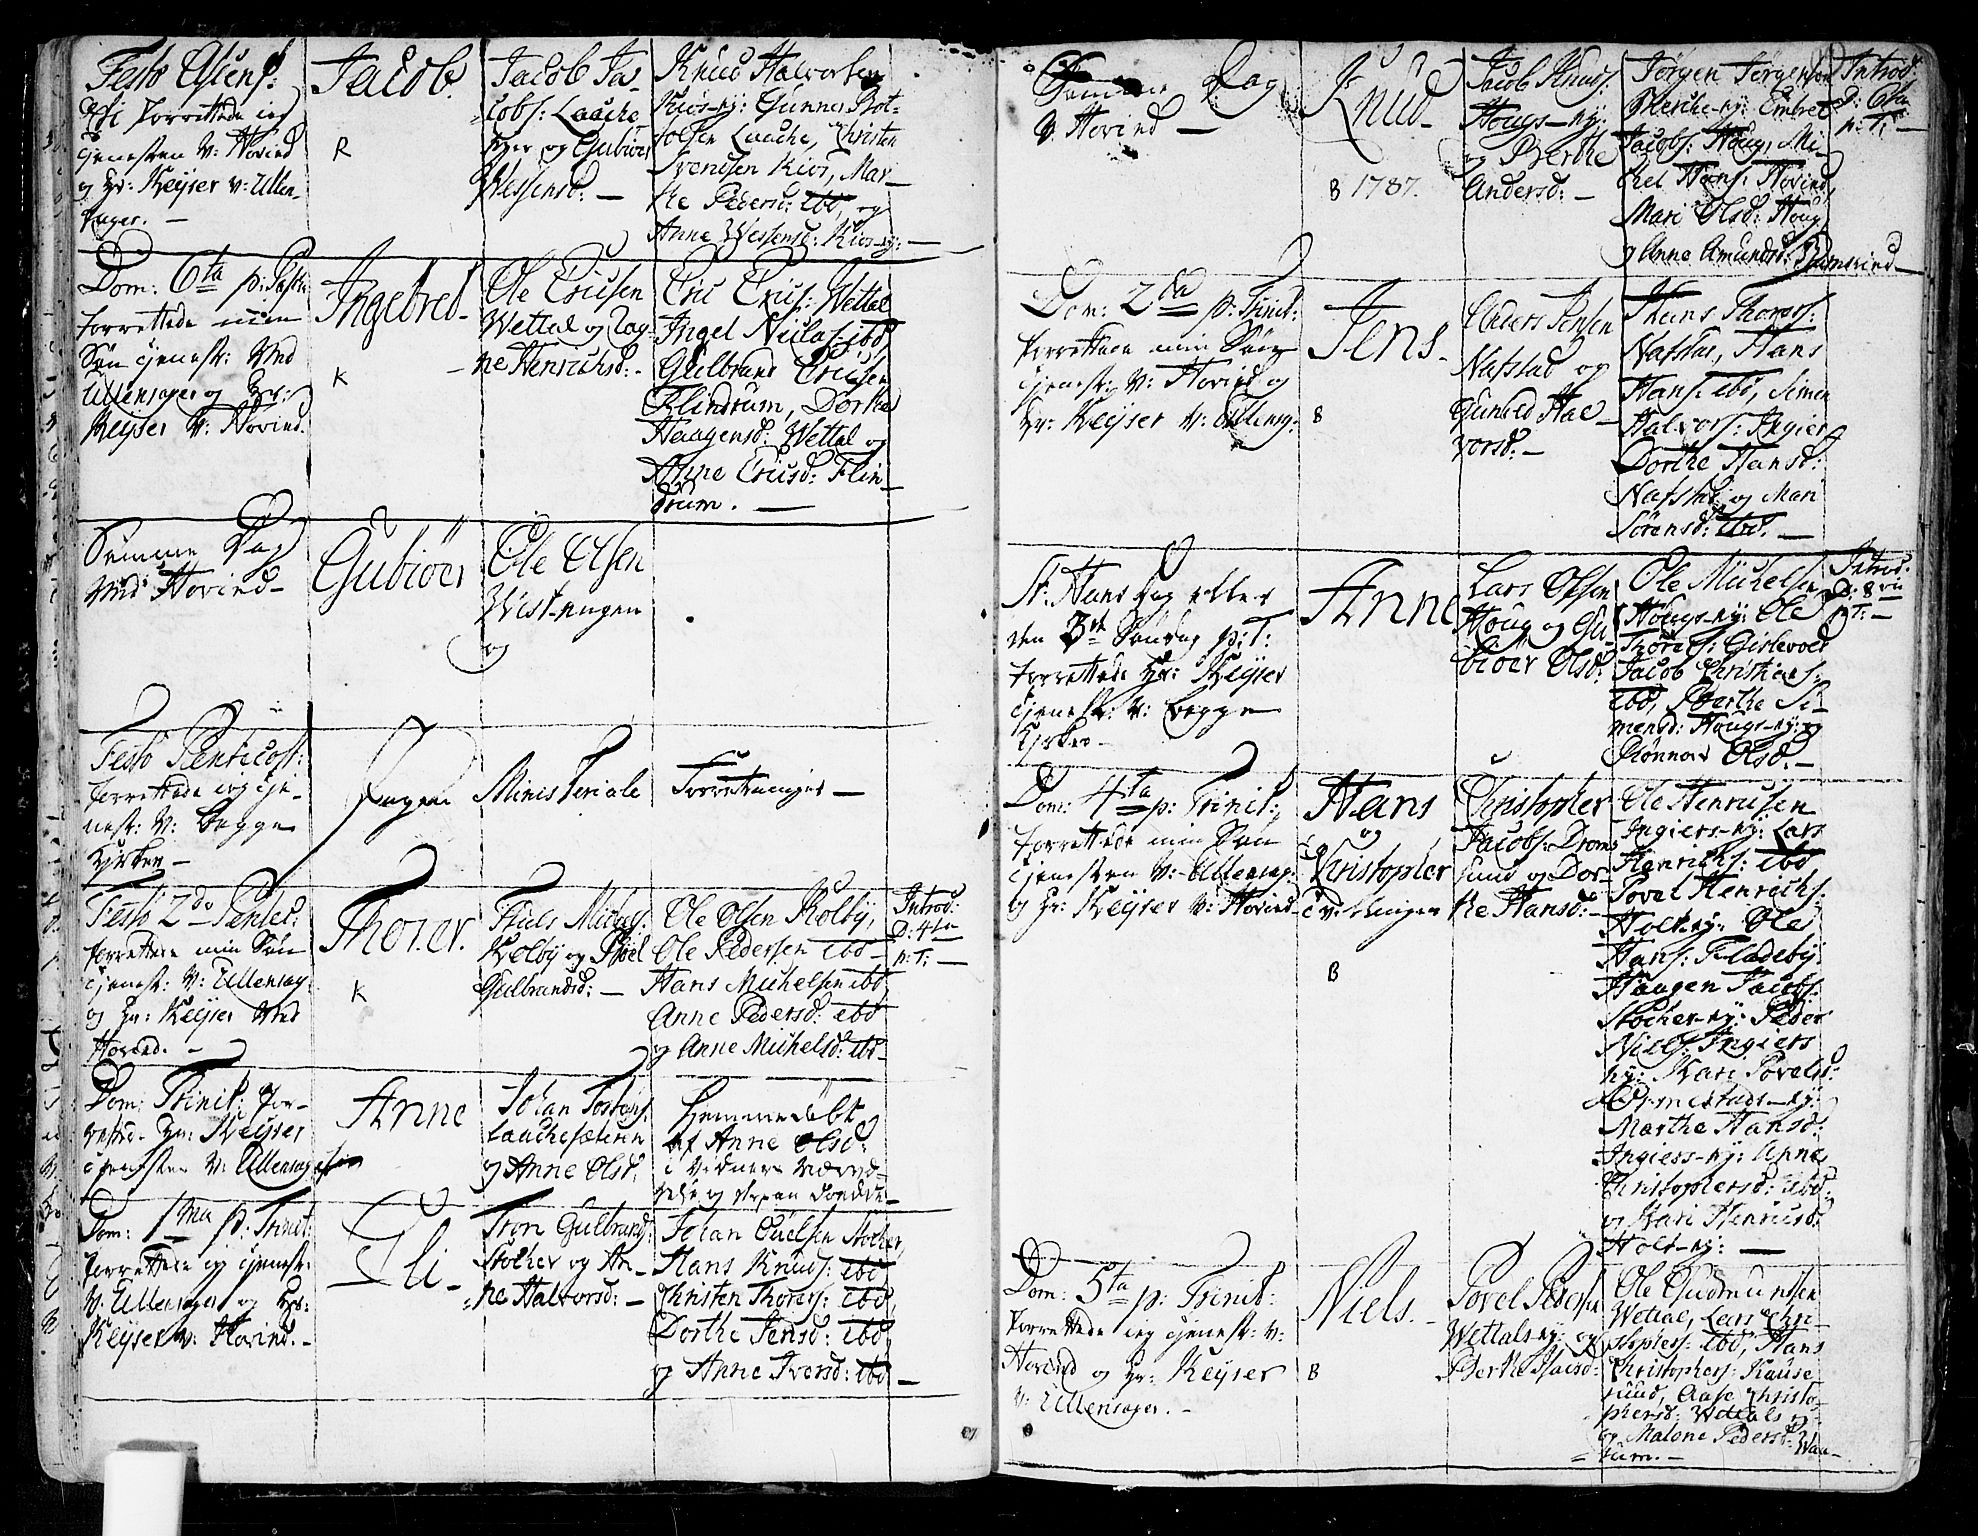 Festo Ascens:
forrettede ieg
tjenesten v: Hovind
og Hr: Keyser v: Ullen-
sager. —
Jacob.
R
Jacob Ja-
cobs: Laache
og Gubiør
Wessensd: —
Knud Halvorsen
Kios-ey: Gunner Bot-
tolfsen Laache, Christen
Svendsen Kios, Mar-
the Pedersd: ibd, og
Anne Wessensd: Kios-ey: —
Dom: 6ta p: Pasch:
forrettede min
Søn tjenest: ved
Ullensager og Hr:
Keyser v: Hovind.
Ingebred.
K
Ole Ericsen
Wettal og Dag-
ne Henrichsd: -
Eric Erics: Wettal
Ingel Nielss: ibd,
Gulbrand Ericsen
Flindrum, Dorthe
Haagensd: Wettal og
Anne Ericsd: Flin-
drum. —
Samme Dag
ved Hovind —
Gubiøer
Ole Olsen
Wist-eugen
og
Festo Penticost:
forrettede ieg tje-
nest: v: begge
Kirker —
Ingen Ministeriale Forretninger —
Festo 2do Pentec:
forrettede min Søn
tjenest: v: Ullensag:
og Hr: Keyser ved
Hovind. —
Thorer.
K
Niels Michels:
Kolby og
Gulbrandsd: —
Ole Olsen Kolby,
Ole Pedersen ibd
Hans Michelsen ibd,
Anne Pedersd: ibd
og Anne Michelsd: ibd
Introd:
D: 4ta
p: T: —
Dom: Trinit: for-
rettede Hr: Keyser
tjenesten v: Ullensager
Anne
Johan Tostens:
Laachesæteren
og Anne Olsd:
Hiemmedøbt
af Anne Olsd:
i Vidners Nærvæ-
relse og
Dom: 1ma p: Trinit:
forrettede ieg tjenest:
v: Ullensager og Hr:
Keyser v: Hovind. -
Eli -
Tron Gulbrands:
Stocher og An-
ne Halvorsd: —
Johan Poulsen Stocher,
Hans Knuds: ibd,
Christen Thorers: ibd,
Dorthe Jensd: ibd
og Anne Iversd: ibd —
Samme Dag
v. Hovind —
Knud-
B 1787.
Jacob Knuds:
Houg-ey:
og Berthe
Andersd: —
Jørgen Jørgensen
Embret
Jacobs: Houg, Mi-
chel Hans: Hovind,
Mari Olsd: Houg
og Anne Amundsd: Ramsrind —
Introd:
D: 6ta
p: T: —
Dom: 2da p: Trinit:
forrettede min Søn
tjenest: v: Hovind og
Hr: Keyser v: Ullensag:
Jens.
B
Anders Jensen
Nafstad og
Gunild Hal-
vorsd: —
Hans Thorers:
Nafstad, Hans
Hans: ibd, Simen
Halvors: Ingier
Dorthe Hansd:
Nafstad og Mari
Sørensd: ibd. —
St: Hans Dag eller
den 3die Søndag p: T:
forrettede Hr: Keyser
tjenest: v: begge
Kirker -
Anne
Lars Olsen
Houg og Gu-
biøer Olsd:
Ole Michelsen
Hougs-ey: Ole
Thorers: Gislevoll
Jacob Christians:
ibd, Berthe Si-
mensd: Hougs-ey: og
Rønnov Olsd. —
Introd:
D: 8va
p: T: —
Dom: 4ta p: Trinit:
forrettede min Søn
tjenesten v: Ullensag:
og Hr: Keyser v: Hovind —
Hans
og
Christopher
Tvillinger
B
Christopher
Jacobs: Drom-
sund og Dor-
the Hansd: -
Ole Henricsen
Ingiers-ey: Lars
Henrichs: ibd
Povel Henrichs:
Holt-ey: Ole
Hans: Fladeby
Haagen Jacobs:
Stocher-ey: Peder
Niels: Ingiers
ey: Kari Povelsd:
Ormestads-ey:
Marthe Hansd:
Ingiers-ey: Anne
Christophersd: ibd:
og Kari Henricsd:
Holt-ey: —
Dom: 5ta p: Trinit:
forrettede ieg tjenest: v:
Hovind og Hr: Keyser
v: Ullensager. -
Niels.
B
Povel Pedersen
Wettals-ey: og
Berthe
Ole Gudmundsen
Wettal, Lars Chri-
stophers: ibd, Hans
Christophers: Kause-
ruud, Aase Christo-
phersd: Wettals
og Malene Pedersd: Wau-
rum. —